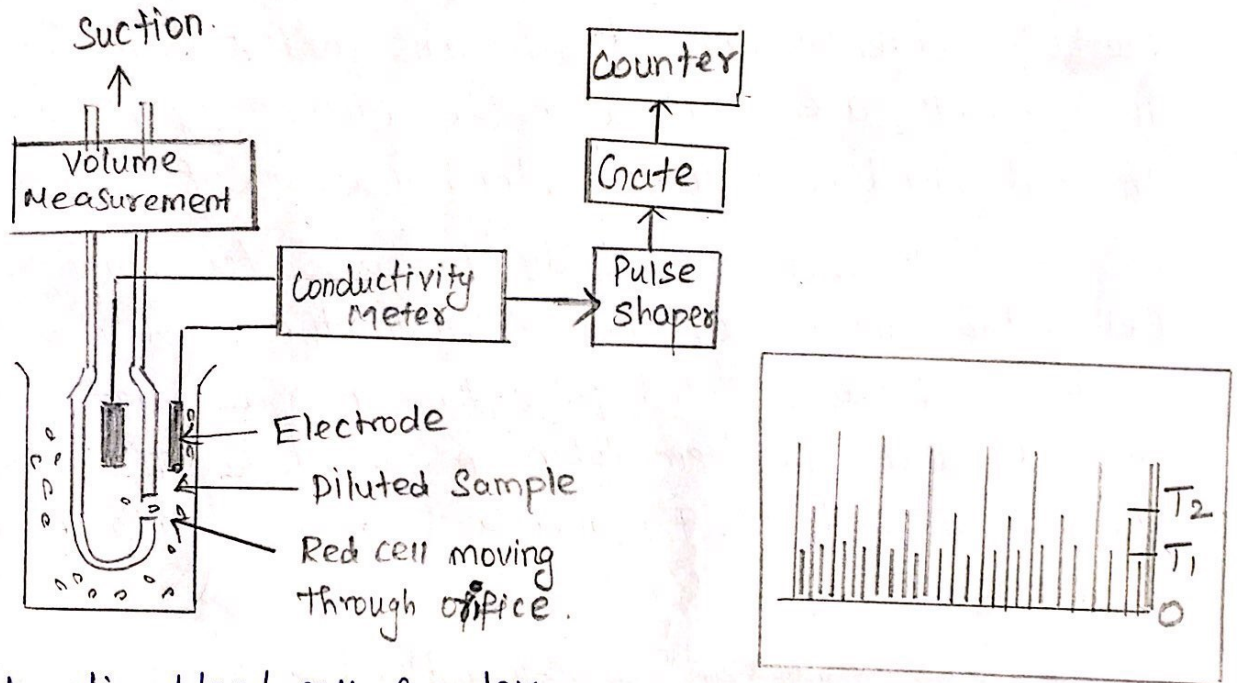 Suction.
Volume
Measurement
Counter
Gate
Conductivity
Meter
Pulse
Shaper
Electrode
Diluted Sample
Red cell moving
through orifice.
T2
T1
0